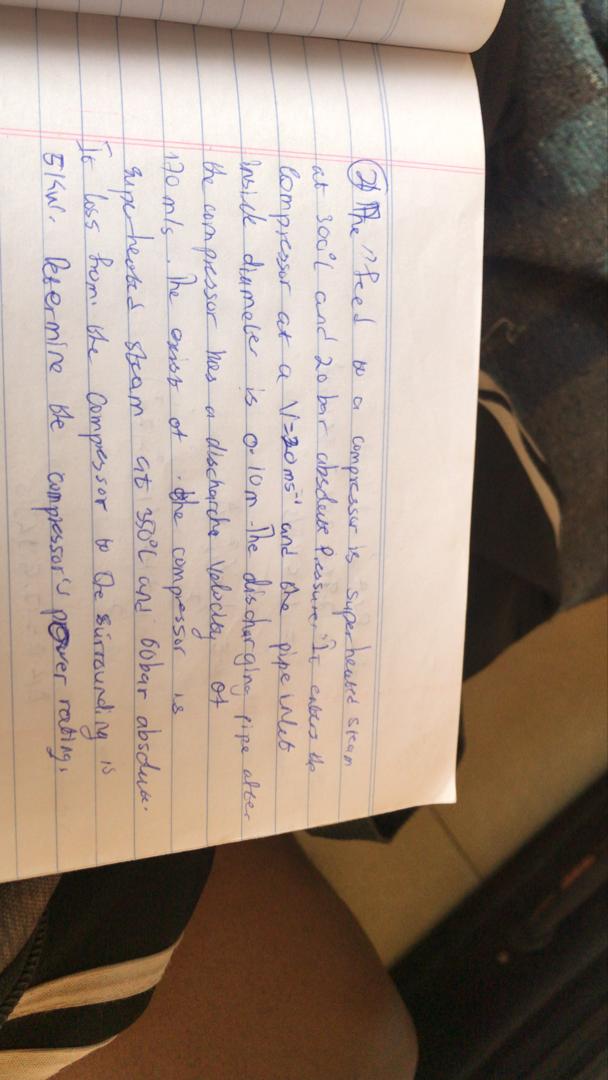 2) The feed to a compressor is superheated steam
at 300°C and 20 bar absolute pressure. It enters the
compressor at a V=20ms⁻¹ and the pipe inlet
inside diameter is 0.10m. The discharging pipe after
the compressor has a discharge velocity of
170 m/s. The exist of the compressor is
superheated steam at 350°C and 60bar absolute.
It loss from the compressor to the surrounding is
51kw. Determine the compressor's power rating.